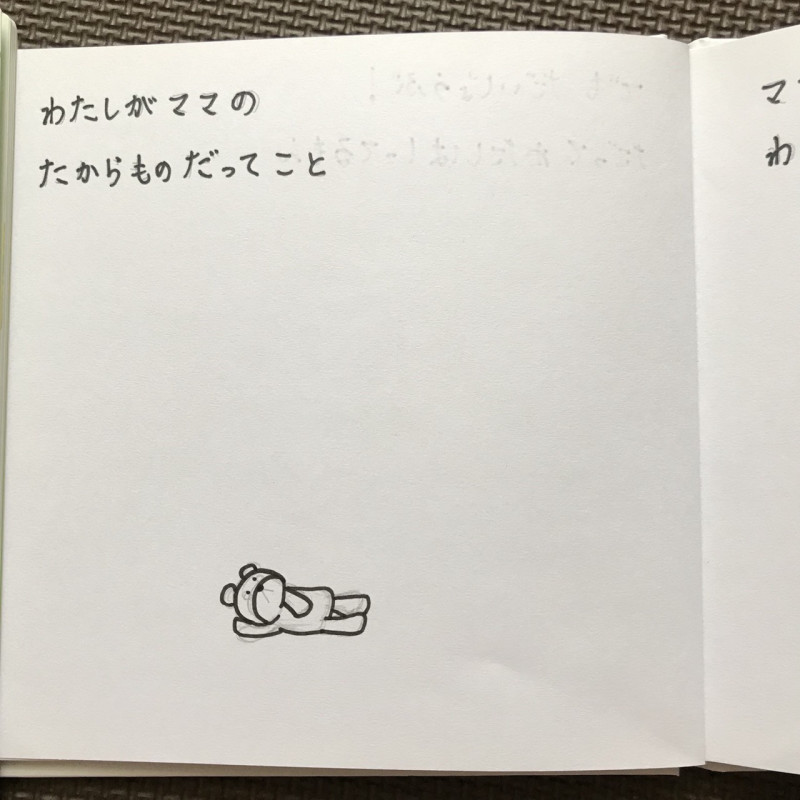 わたしがママの
たからものだってこと
マ
わ